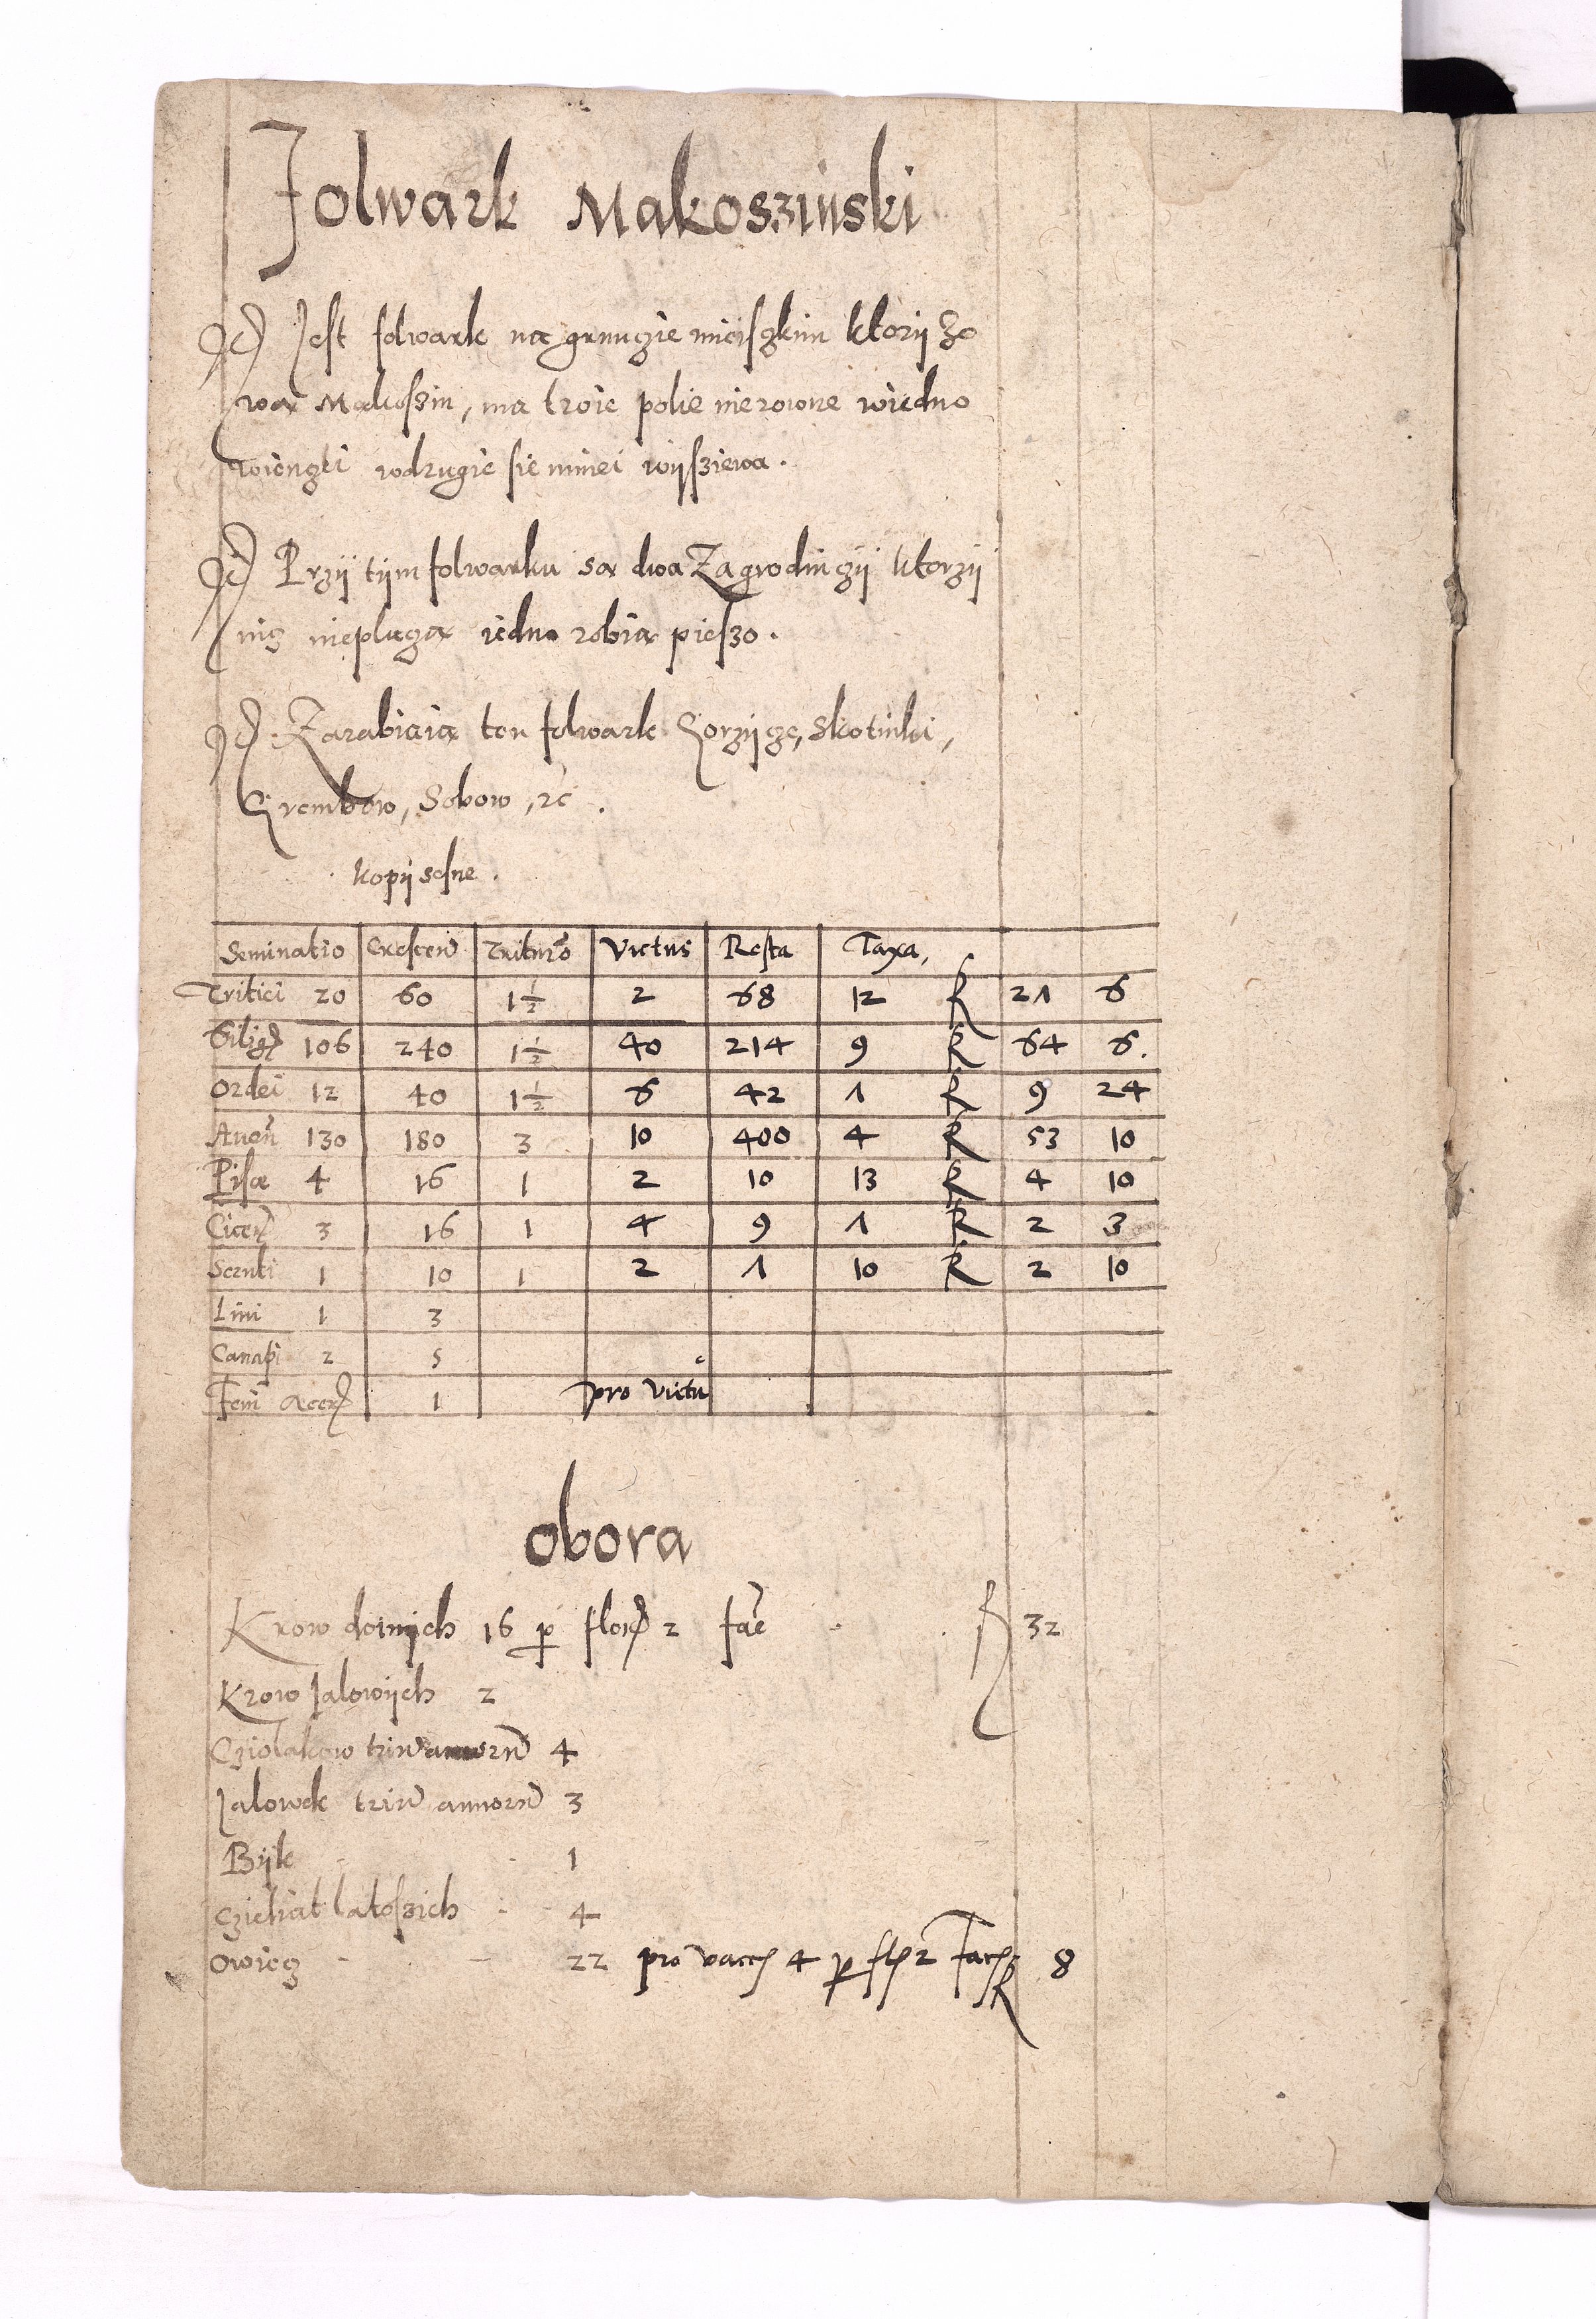 Folwark Makoszinski
Jest folwark na grunczie mieiszkim ktorÿ zo
wą Makoszin, ma troie polie nierowne wiedno
wienczei wdrugie sie mniei wÿsziewa.
Przÿ tÿm folwarku są dwa Zagrodniczÿ ktorzÿ
nicz nieplaczą iedno robią pieszo.
Zarabiaią ten folwark Gorzÿcze, Skotniki,
Grembow, Sobow, ꝛc.
kopÿ sesne.
Seminatio Crescen Tritura Victus Resta Taxa,
Tritici 20 60 1½ 2 68 12 R 21 6
Silig 106 240 1½ 40 214 9 R 64 6.
Ordei 12 40 1½ 6 42 1 R 9 24
Auen 130 180 3 10 400 4 R 53 10
Pisae 4 16 1 2 10 13 R 4 10
Cicer 3 16 1 4 9 1 R 2 3
1 10 1 2 1 10 R 2 10
Lini 1 3
Canapi 2 5
Feni acer 1 pro victu
obora
Krow doinÿch 16 p flor 2 fac R 32
Krow Jalowÿch 2
Cziolakow trium annorum 4
Jalowek trium annorum 3
Bÿk 1
Czieliat latoszich 4
owiecz 22 pro vacc 4 p fl 2 fac R 8